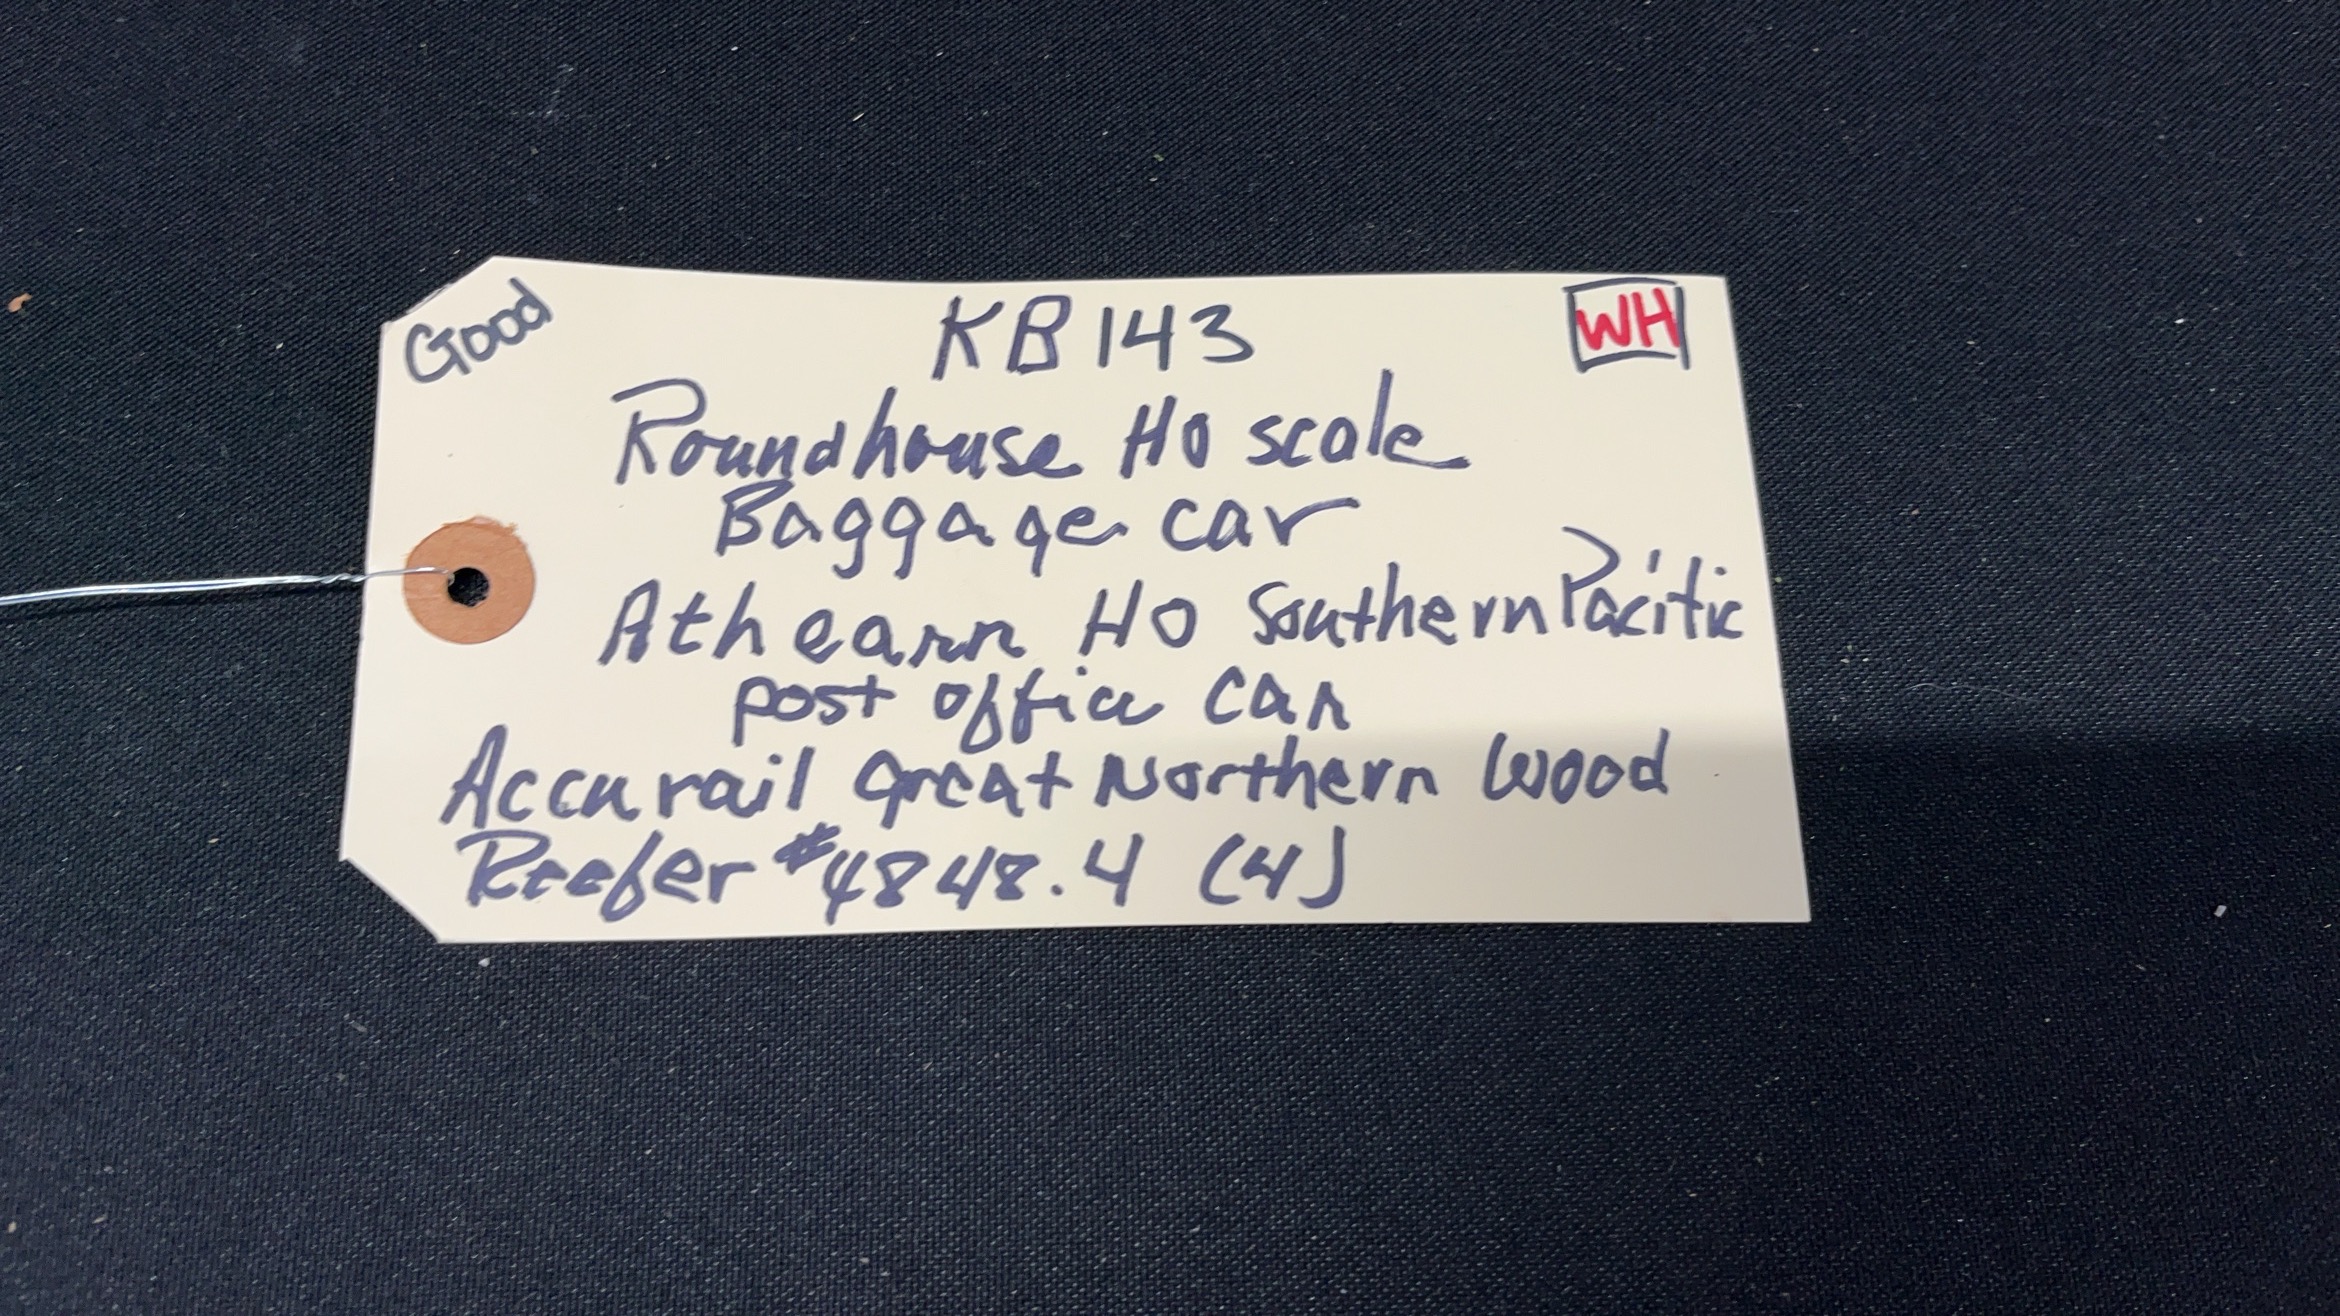 Good
KB143
WH
Roundhouse HO scale
Baggage car
Athearn HO Southern Pacific
post office car
Accurail Great Northern Wood
Reefer #4848.4 (4)